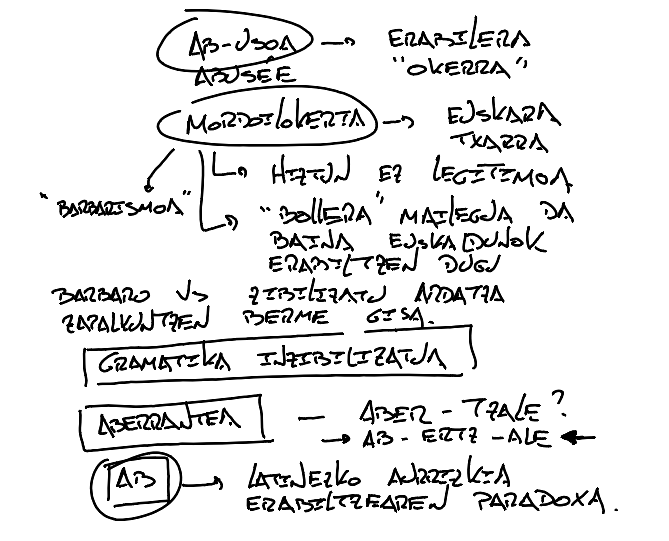 AB-USOA → ERABILERA
ABUSÉE "OKERRA"
MORDOILOKERIA → EUSKARA
TXARRA
→ HIZTUN EZ LEGITIMOA
"BARBARISMOA"
→ "BOLLERA" MAILEGUA DA
BAINA EUSKALDUNOK
ERABILTZEN DUGU
BARBARO VS ZIBILIZATU ARDATZA
ZAPALKUNTZEN BERME GISA.
GRAMATIKA INZIBILIZATUA
ABERRANTEA — ABER-TZALE?
→ AB-ERTZ-ALE ←
AB → LATINEZKO AURRIZKIA
ERABILTZEAREN PARADOXA.